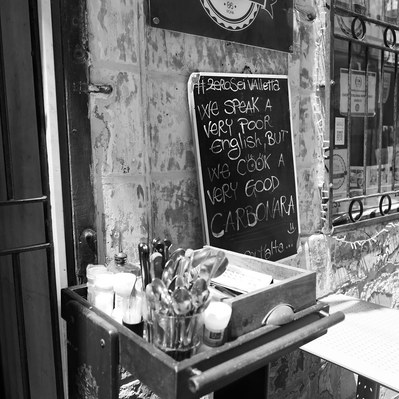 #ZEROSEIVALLETTA
WE SPEAK A
VERY POOR
English, BUT
WE COOK A
VERY GOOD
CARBONARA